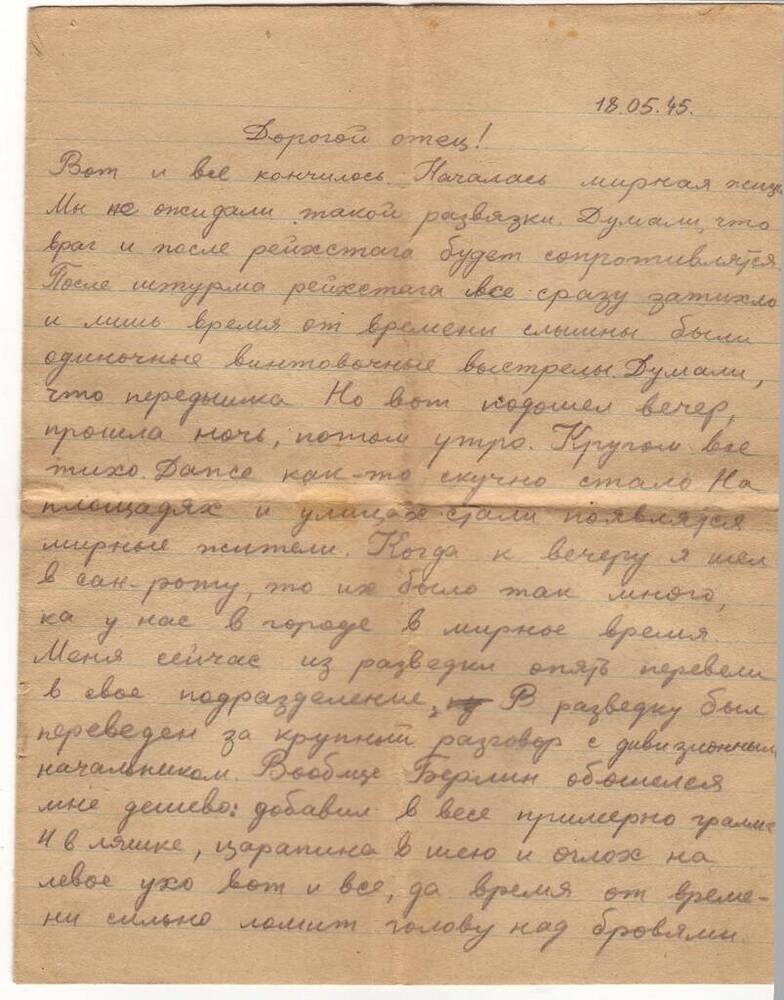 18.05.45.
Дорогой отец!
Вот и все кончилось. Началась мирная
Мы не ожидали такой развязки. Думали, что
враг и после рейхстага будет сопротивлятся
После штурма рейхстага все сразу затихло
и лишь время от времени слышны были
одиночные винтовочные выстрелы. Думали,
что передышка Но вот подошел вечер,
прошла ночь, потом утро. Кругом все
тихо. Даже как-то скучно стало На
площадях и улицах стали появлятся
мирные жители. Когда к вечеру я шел
в сан-роту, то их было так много,
ка у нас в городе в мирное время.
Меня сейчас из разведки опять перевели
в свое подразделение, В разведку был
переведен за крупный разговор с дивизионным
начальником. Вообще Берлин обошелся
мне дешево: добавил в весе примерно грамм
4 в ляшке, царапина в шею и оглох на
левое ухо вот и все, да время от време-
ни сильно ломит голову над бровями.